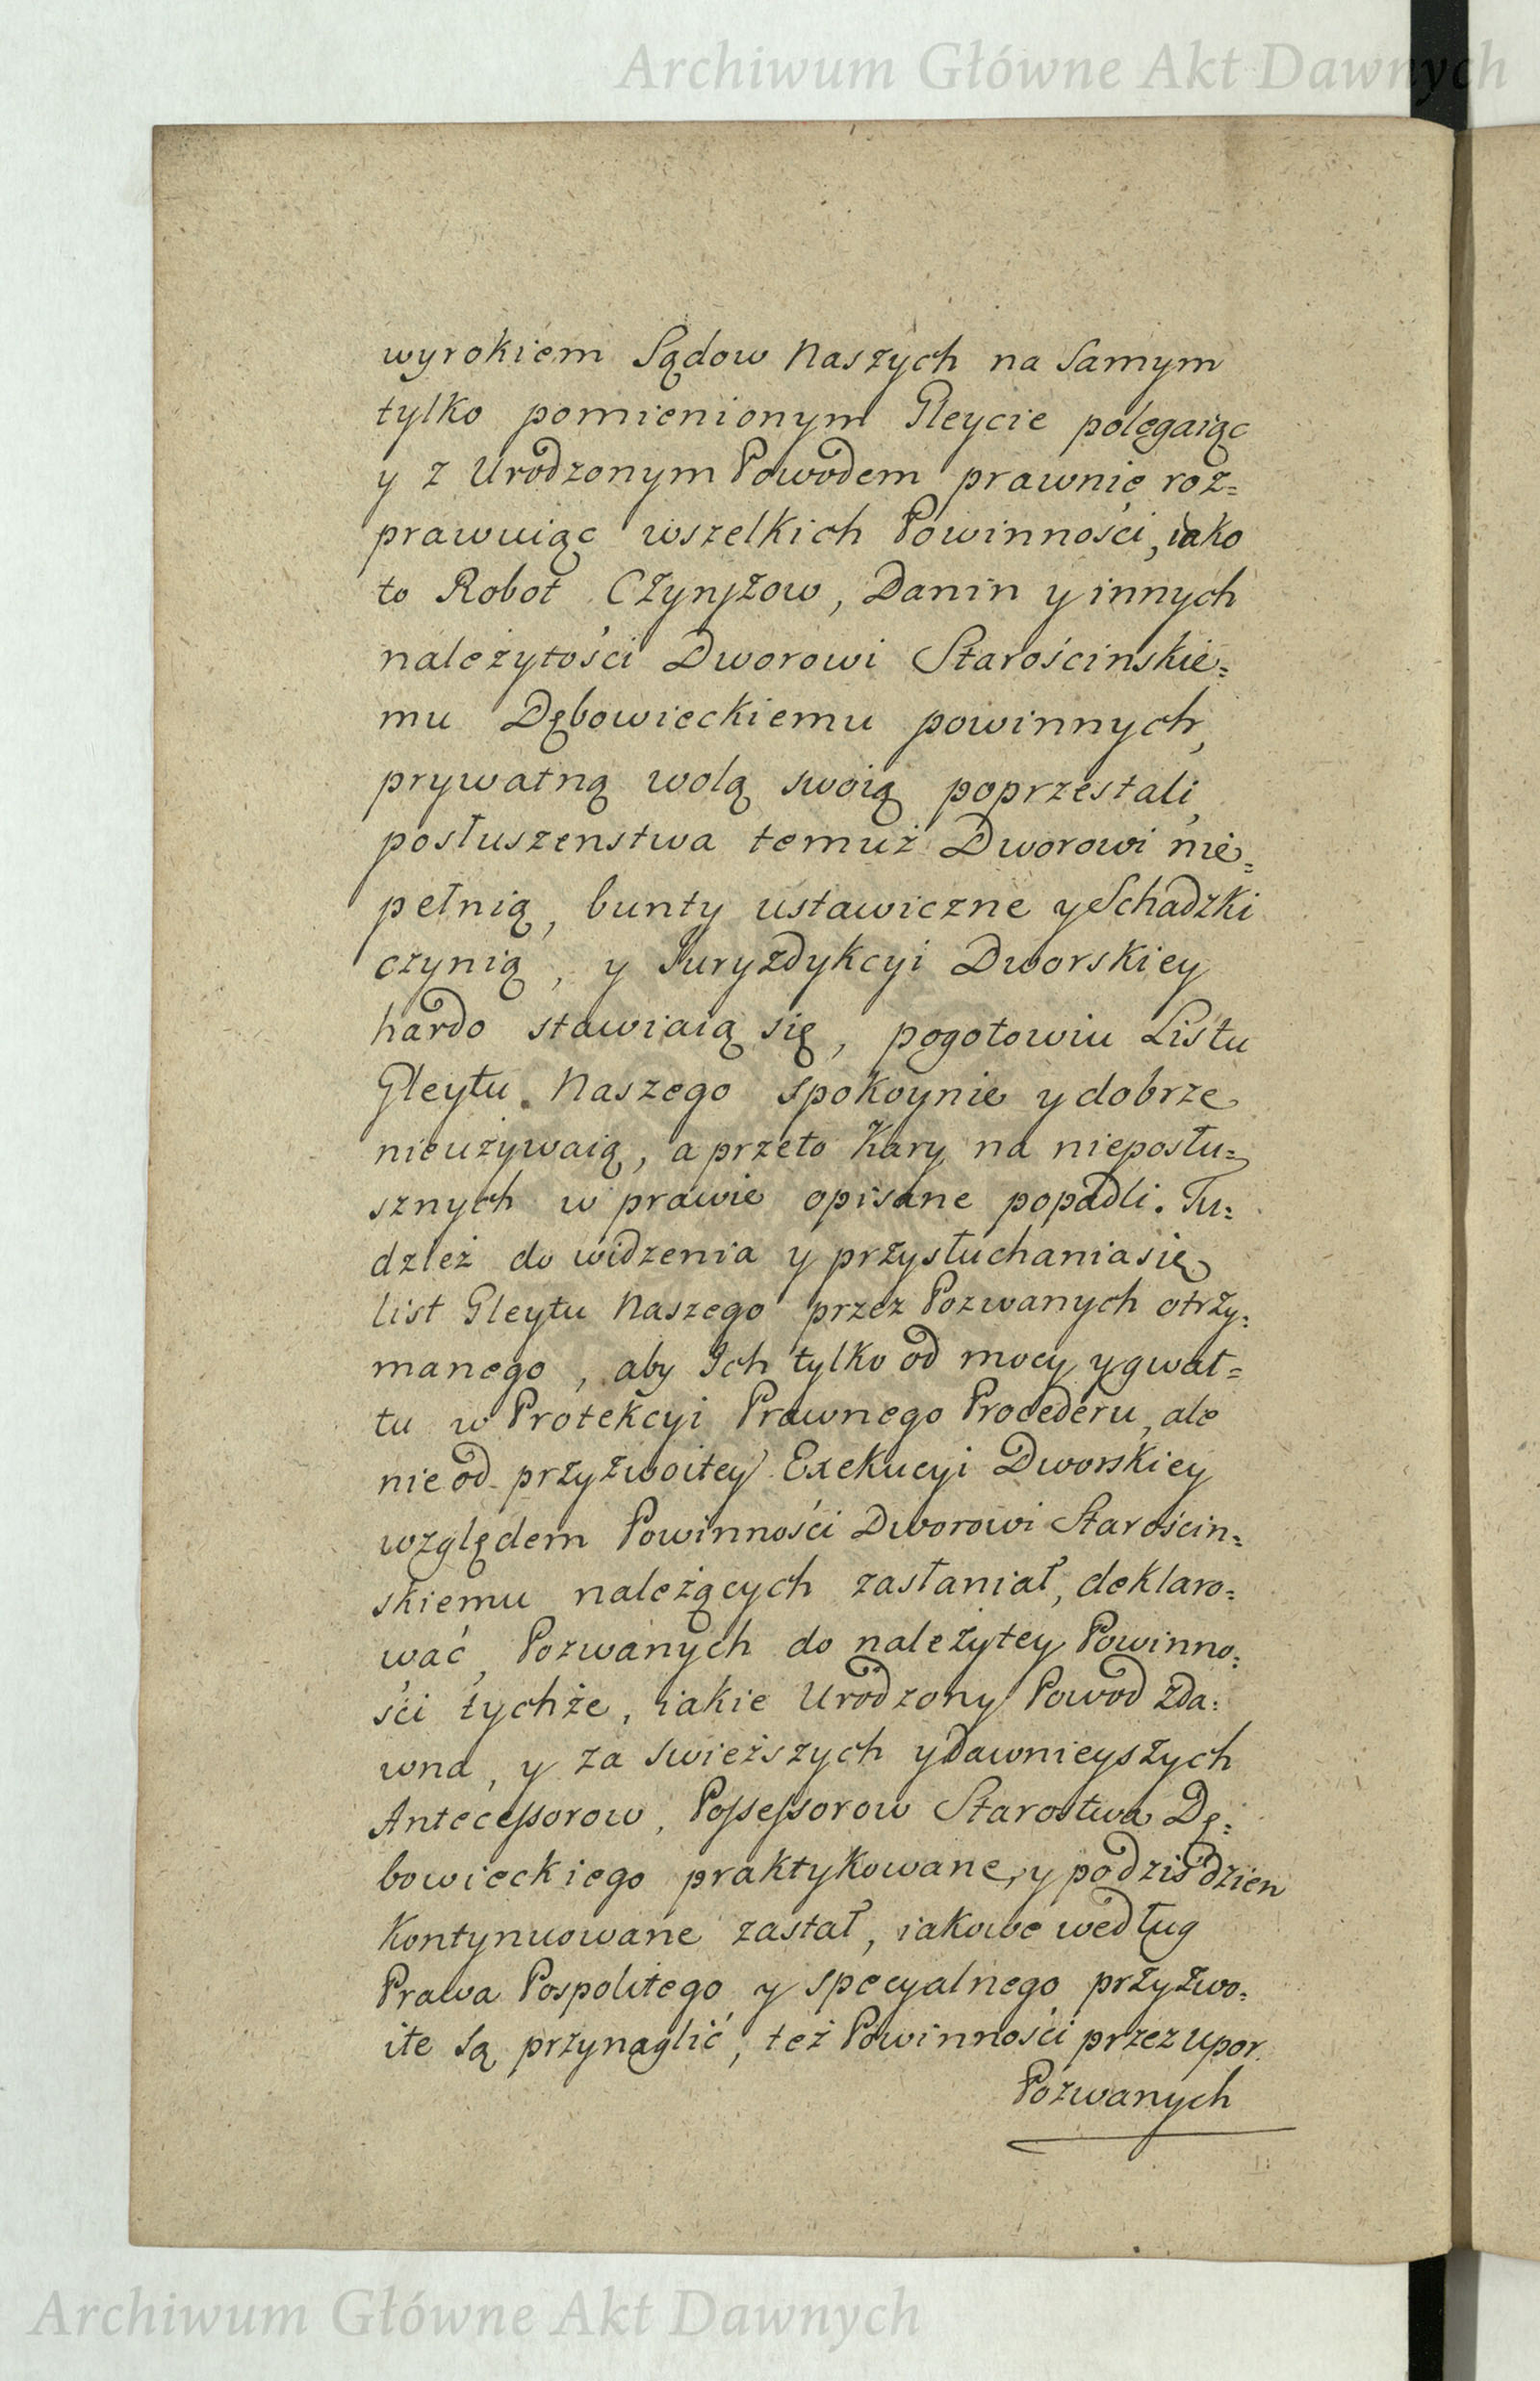 Archiwum Główne Akt Dawnych
wyrokiem Sądow Naszych na Samym
tylko pomienionym Gleycie polęgaiąc
y z Urodzonym Powodem prawnie roz=
prawuiąc wszelkich Powinności, iako
to Robot Czynszow, Danin y innych
należytości Dworowi Starościnskie=
mu Dębowieckiemu powinnych,
prywatną wolą swoią poprzestali,
posłuszenstwa temuż Dworowi nie=
pełnią, bunty ustawiczne y Schadzki
czynią, y Juryzdykcyi Dworskiey
hardo stawiaią się, pogotowiu Listu
Gleytu Naszego spokoynie y dobrze
nieużywaią, a przeto Kary na nieposłu=
sznych w prawie opisane popadli. Tu=
dzież do widzenia y przysłuchania się
list Gleytu Naszego przez Pozwanych otrzy=
manego, aby Ich tylko od mocy y gwał=
tu w Protekcyi Prawnego Procederu, ale
nie od przyzwoitey Exekucyi Dworskiey
względem Powinności Dworowi Starościn=
skiemu należących zasłaniał, deklaro=
wać, Pozwanych do należytey Powinno=
ści tychże, iakie Urodzony Powod zda=
wna, y za swieższych y dawnieyszych
Antecessorow, Possessorow Starostwa Dę=
bowieckiego praktykowane, y podziśdzien
Kontynuowane zastał, iakowe według
Prawa Pospolitego y specyalnego przyzwo=
ite są przynaglić, też Powinności przez upor
Pozwanych
Archiwum Główne Akt Dawnych